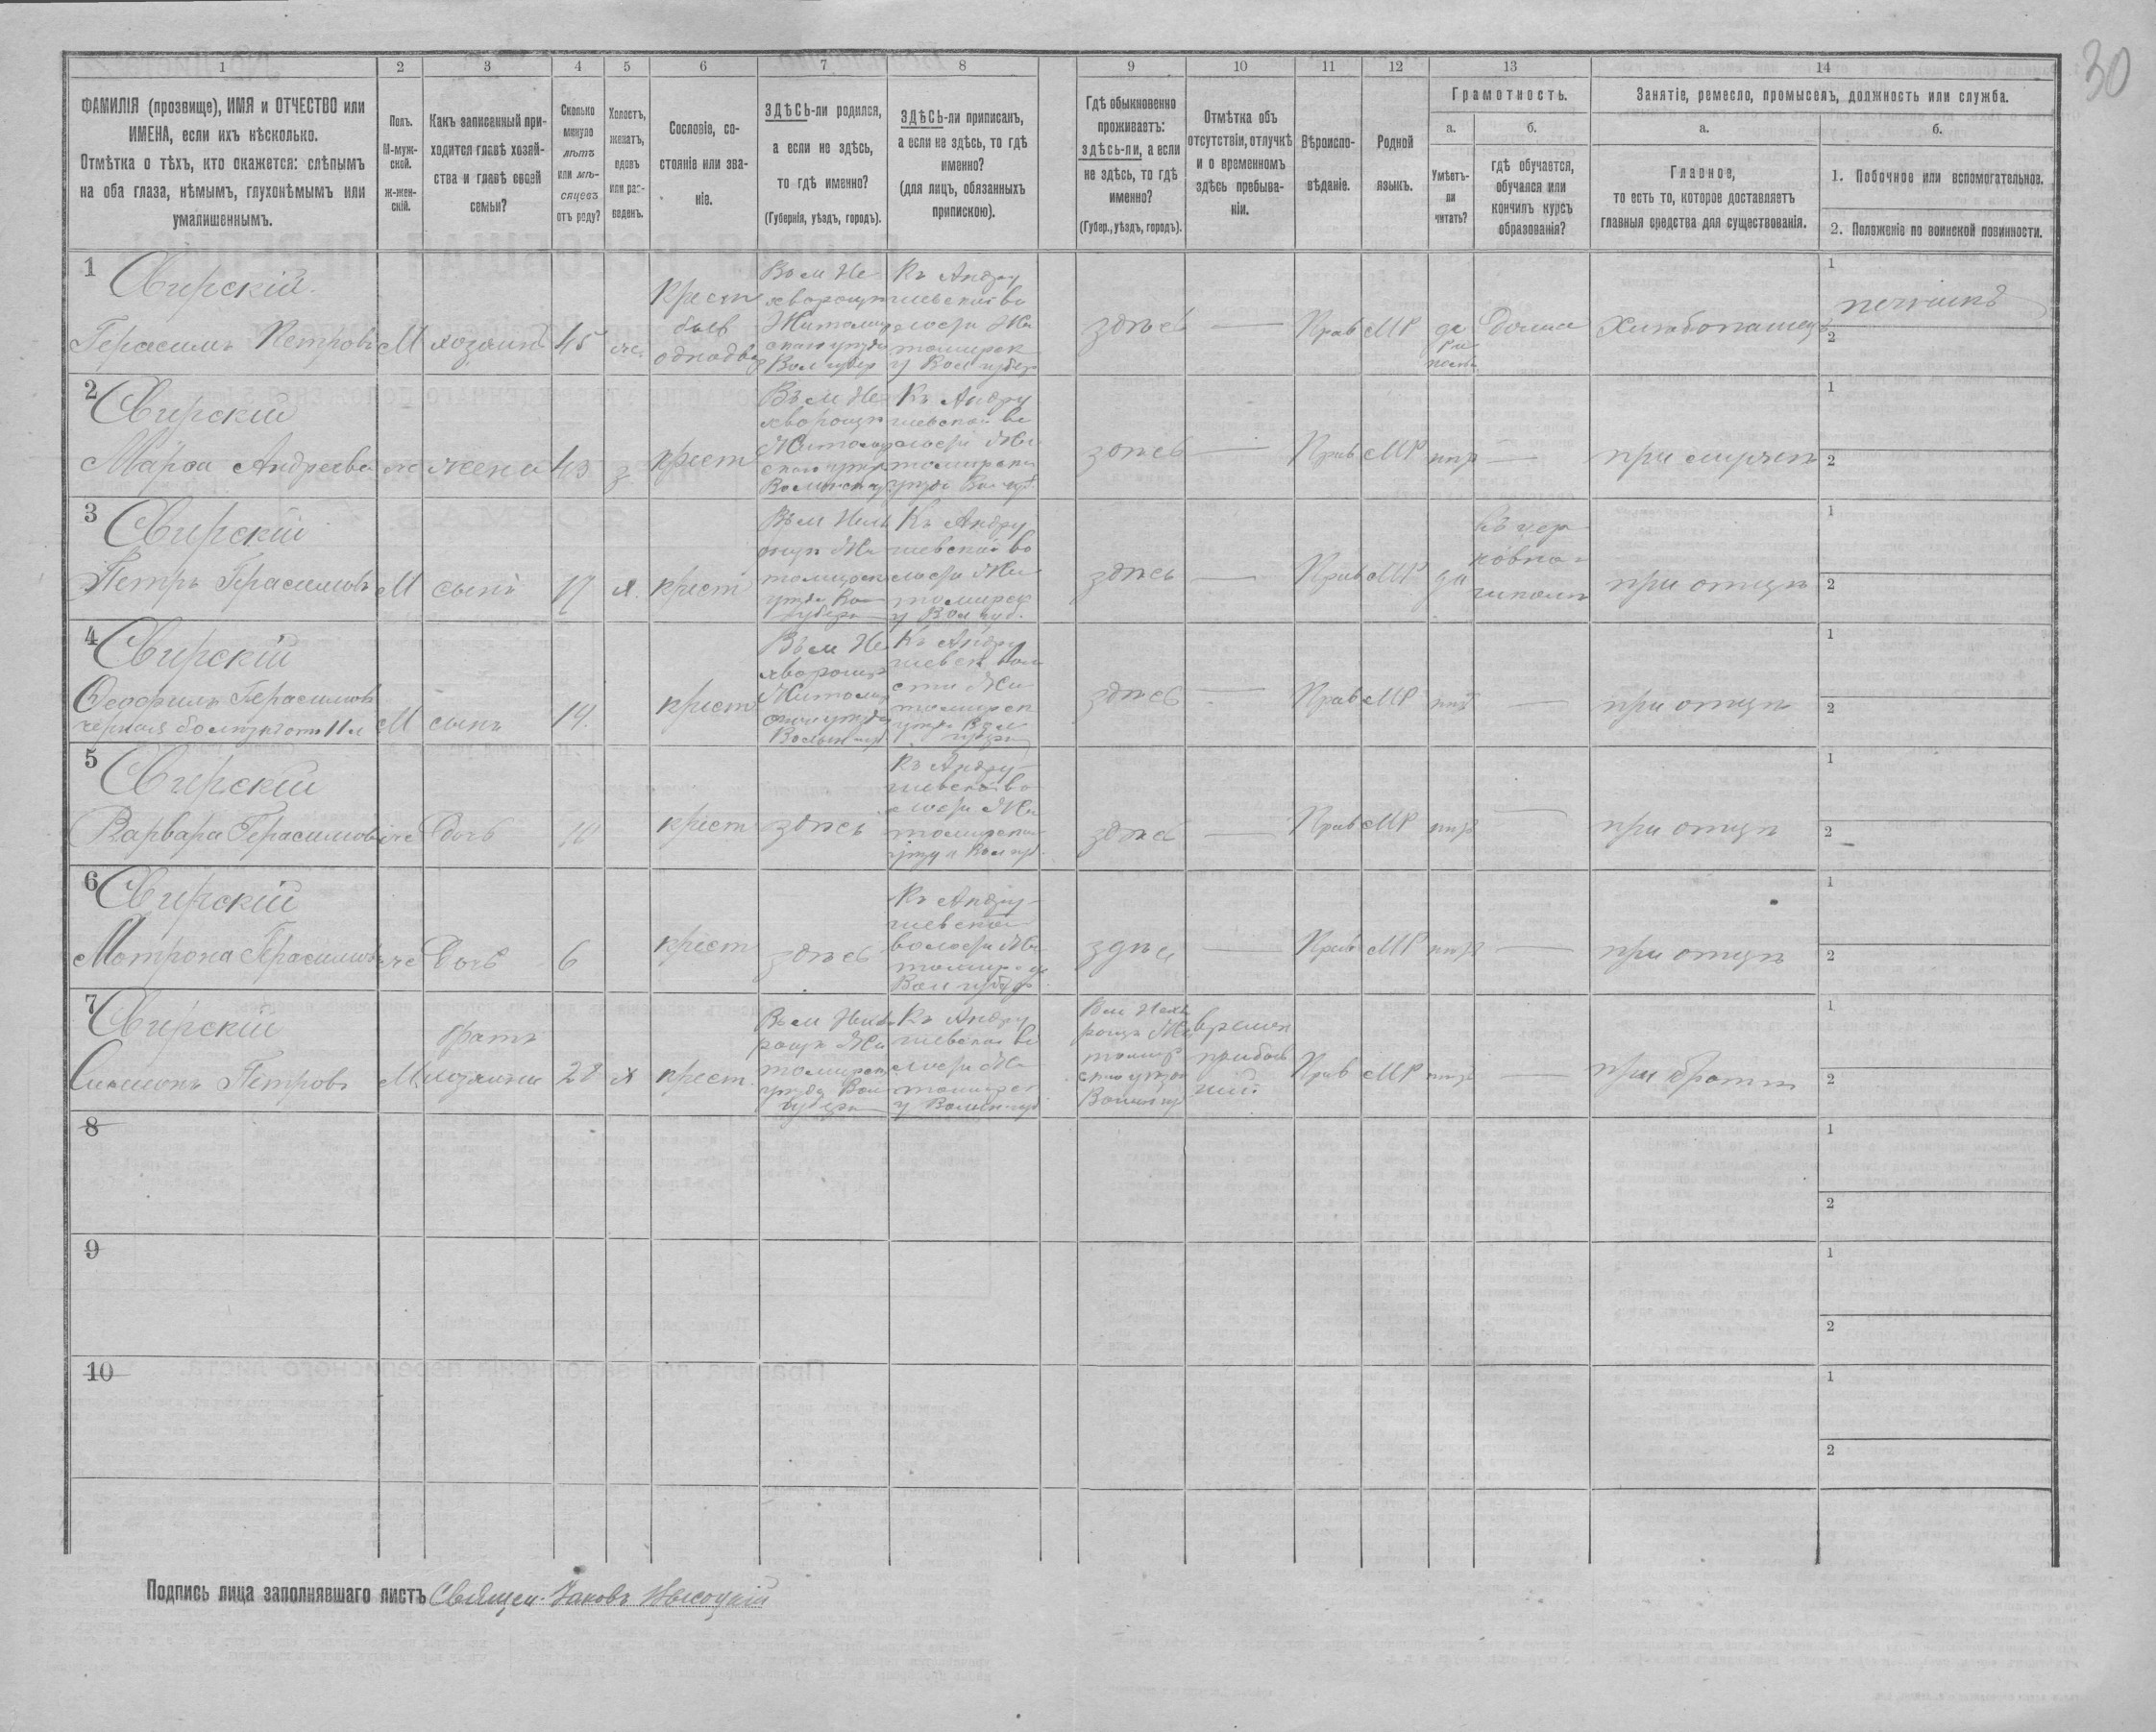 30
1
2
3
4
5
6
7
8
9
10
11
12
13
14
ФАМИЛІЯ (прозвище), ИМЯ и ОТЧЕСТВО или
ИМЕНА, если ихъ нѣсколько.
Отмѣтка о тѣхъ, кто окажется: слѣпымъ
на оба глаза, нѣмымъ, глухонѣмымъ или
умалишеннымъ.
Полъ.
М-муж-
ской.
ж-жен-
скій.
Какъ записанный при-
ходится главѣ хозяй-
ства и главѣ своей
семьи?
Сколько
минуло
лѣтъ
или мѣ-
сяцевъ
отъ роду?
Холостъ,
женатъ,
вдовъ
или раз-
веденъ.
Сословіе, со-
стояніе или зва-
ніе.
ЗДѢСЬ-ли родился,
а если не здѣсь,
то гдѣ именно?
(Губернія, уѣздъ, городъ).
ЗДѢСЬ-ли приписанъ,
а если не здѣсь, то гдѣ
именно?
(для лицъ, обязанныхъ
припискою).
Гдѣ обыкновенно
проживаетъ:
здѣсь-ли, а если
не здѣсь, то гдѣ
именно?
(Губер., уѣздъ, городъ).
Отмѣтка объ
отсутствіи, отлучкѣ
и о временномъ
здѣсь пребыва-
ніи.
Вѣроиспо-
вѣданіе.
Родной
языкъ.
Грамотность.
а.
Умѣетъ-
ли
читать?
б.
гдѣ обучается,
обучался или
кончилъ курсъ
образованія?
Занятіе, ремесло, промыселъ, должность или служба.
а.
Главное,
то есть то, которое доставляетъ
главныя средства для существованія.
б.
1. Побочное или вспомогательное.
2. Положеніе по воинской повинности.
1
Свирскій
Герасимъ Петровъ
М
хозяинъ
45
ж.
крест
быв
однодв
Въ м Не
Житомир
Вол губер
Къ Андру
шевской во
лости Жи
томирск
у Вол губер
здѣсь
—
Прав
МР
да
дома
Хлѣбопашецъ
1
печникъ
2
2
Свирскій
Марѳа Андреева
ж
жена
43
з.
крест
Въ м Не
Къ Андру
шевской во
лости Жи
здѣсь
—
Прав
МР
нѣт
—
при мужѣ
1
2
3
Свирскій
Петръ Герасимовъ
М
сынъ
17
х.
крест
Къ Андру
шевской во
лости Жи
томирск
у Вол губ.
здѣсь
—
Прав
МР
да
въ цер
ковно-
школѣ
при отцѣ
1
2
4
Свирскій
Ѳеофилъ Герасимовъ
М
сынъ
14.
крест
Въ м Не
Къ Андру
здѣсь
—
Прав
МР
нѣт
—
при отцѣ
1
2
5
Свирскій
Варвара Герасимов
ж
дочь
10
крест
здѣсь
Къ Андру-
шевской во
лости Жи
здѣсь
—
Прав
МР
нѣт
—
при отцѣ
1
2
6
Свирскій
Матрона Герасимов
ж
дочь
6
крест
здѣсь
Къ Андру-
шевской
волости Жи
Вол губер
здѣсь
—
Прав
МР
нѣт
—
при отцѣ
1
2
7
Свирскій
Симіонъ Петровъ
М
братъ
хозяина
28
х
крест.
Къ Андру
шевской во
лости Жи
томирск
у Волын губ
времен
прибыв
шій
Прав
МР
нѣт
—
при братѣ
1
2
8
1
2
9
1
2
10
1
2
Подпись лица заполнявшаго листъ Священ. Іаковъ Высоцкій